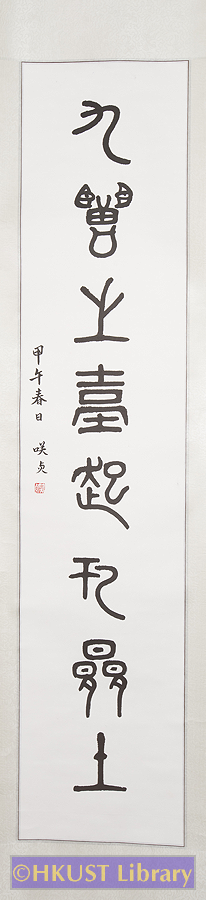 九層之臺起於累土
甲午春日 咲貞
©HKUST Library